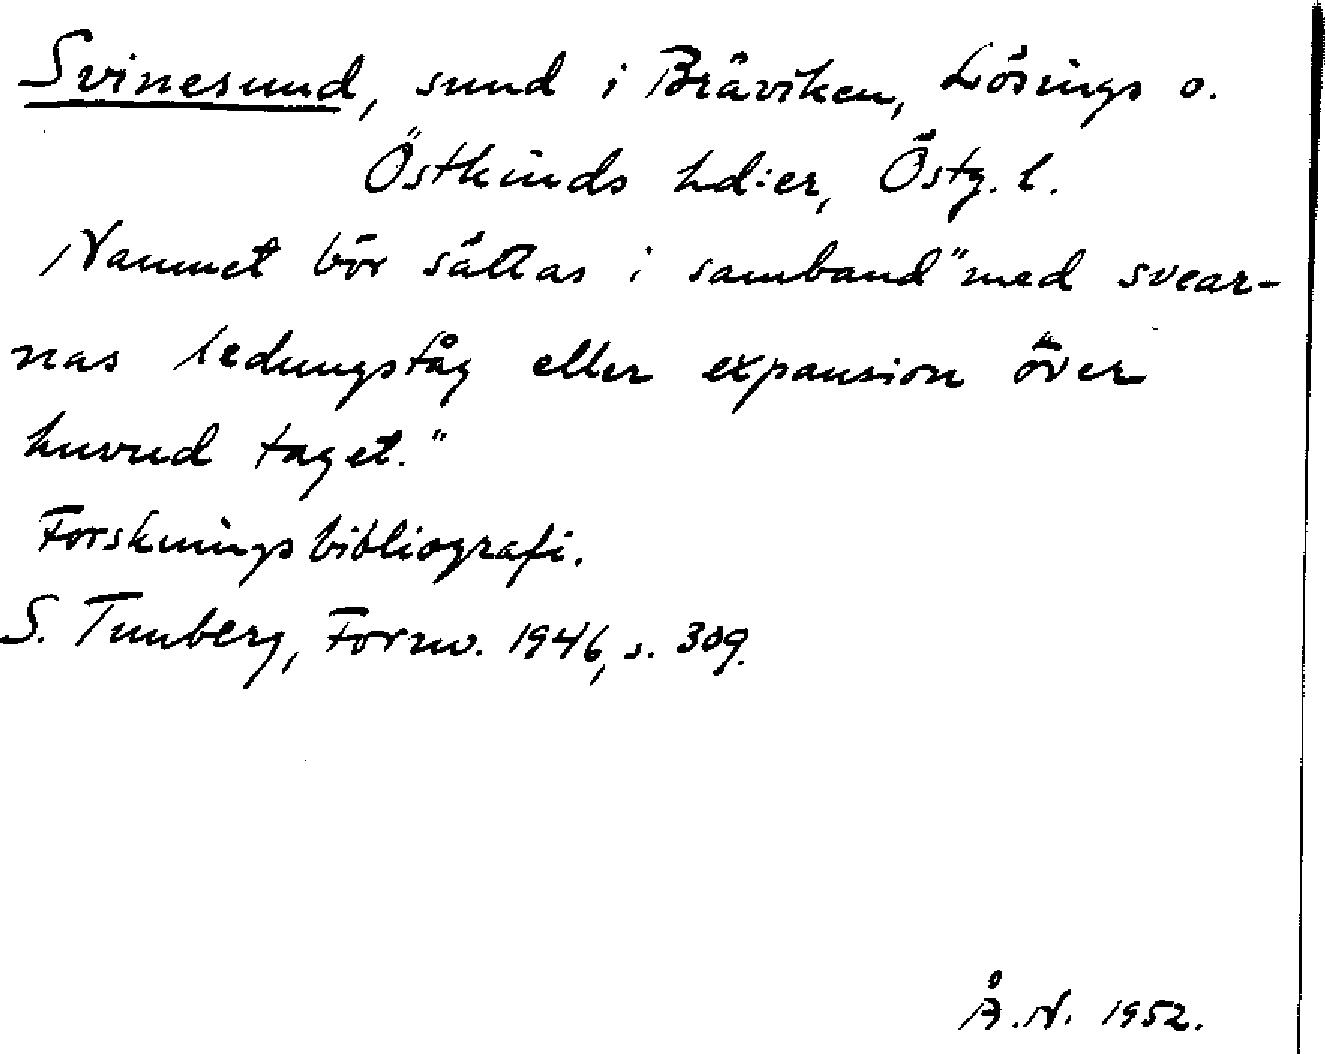 Svinesund, sund i Bråviken, Lösings o.
Östkinds hd:er, Östg. l.
Namnet bör sättas i samband "med svear-
nas ledungståg eller expansion över
huvud taget."
Forskningsbibliografi.
S. Tunberg, Fornv. 1946, s. 309.
Å.N. 1952.